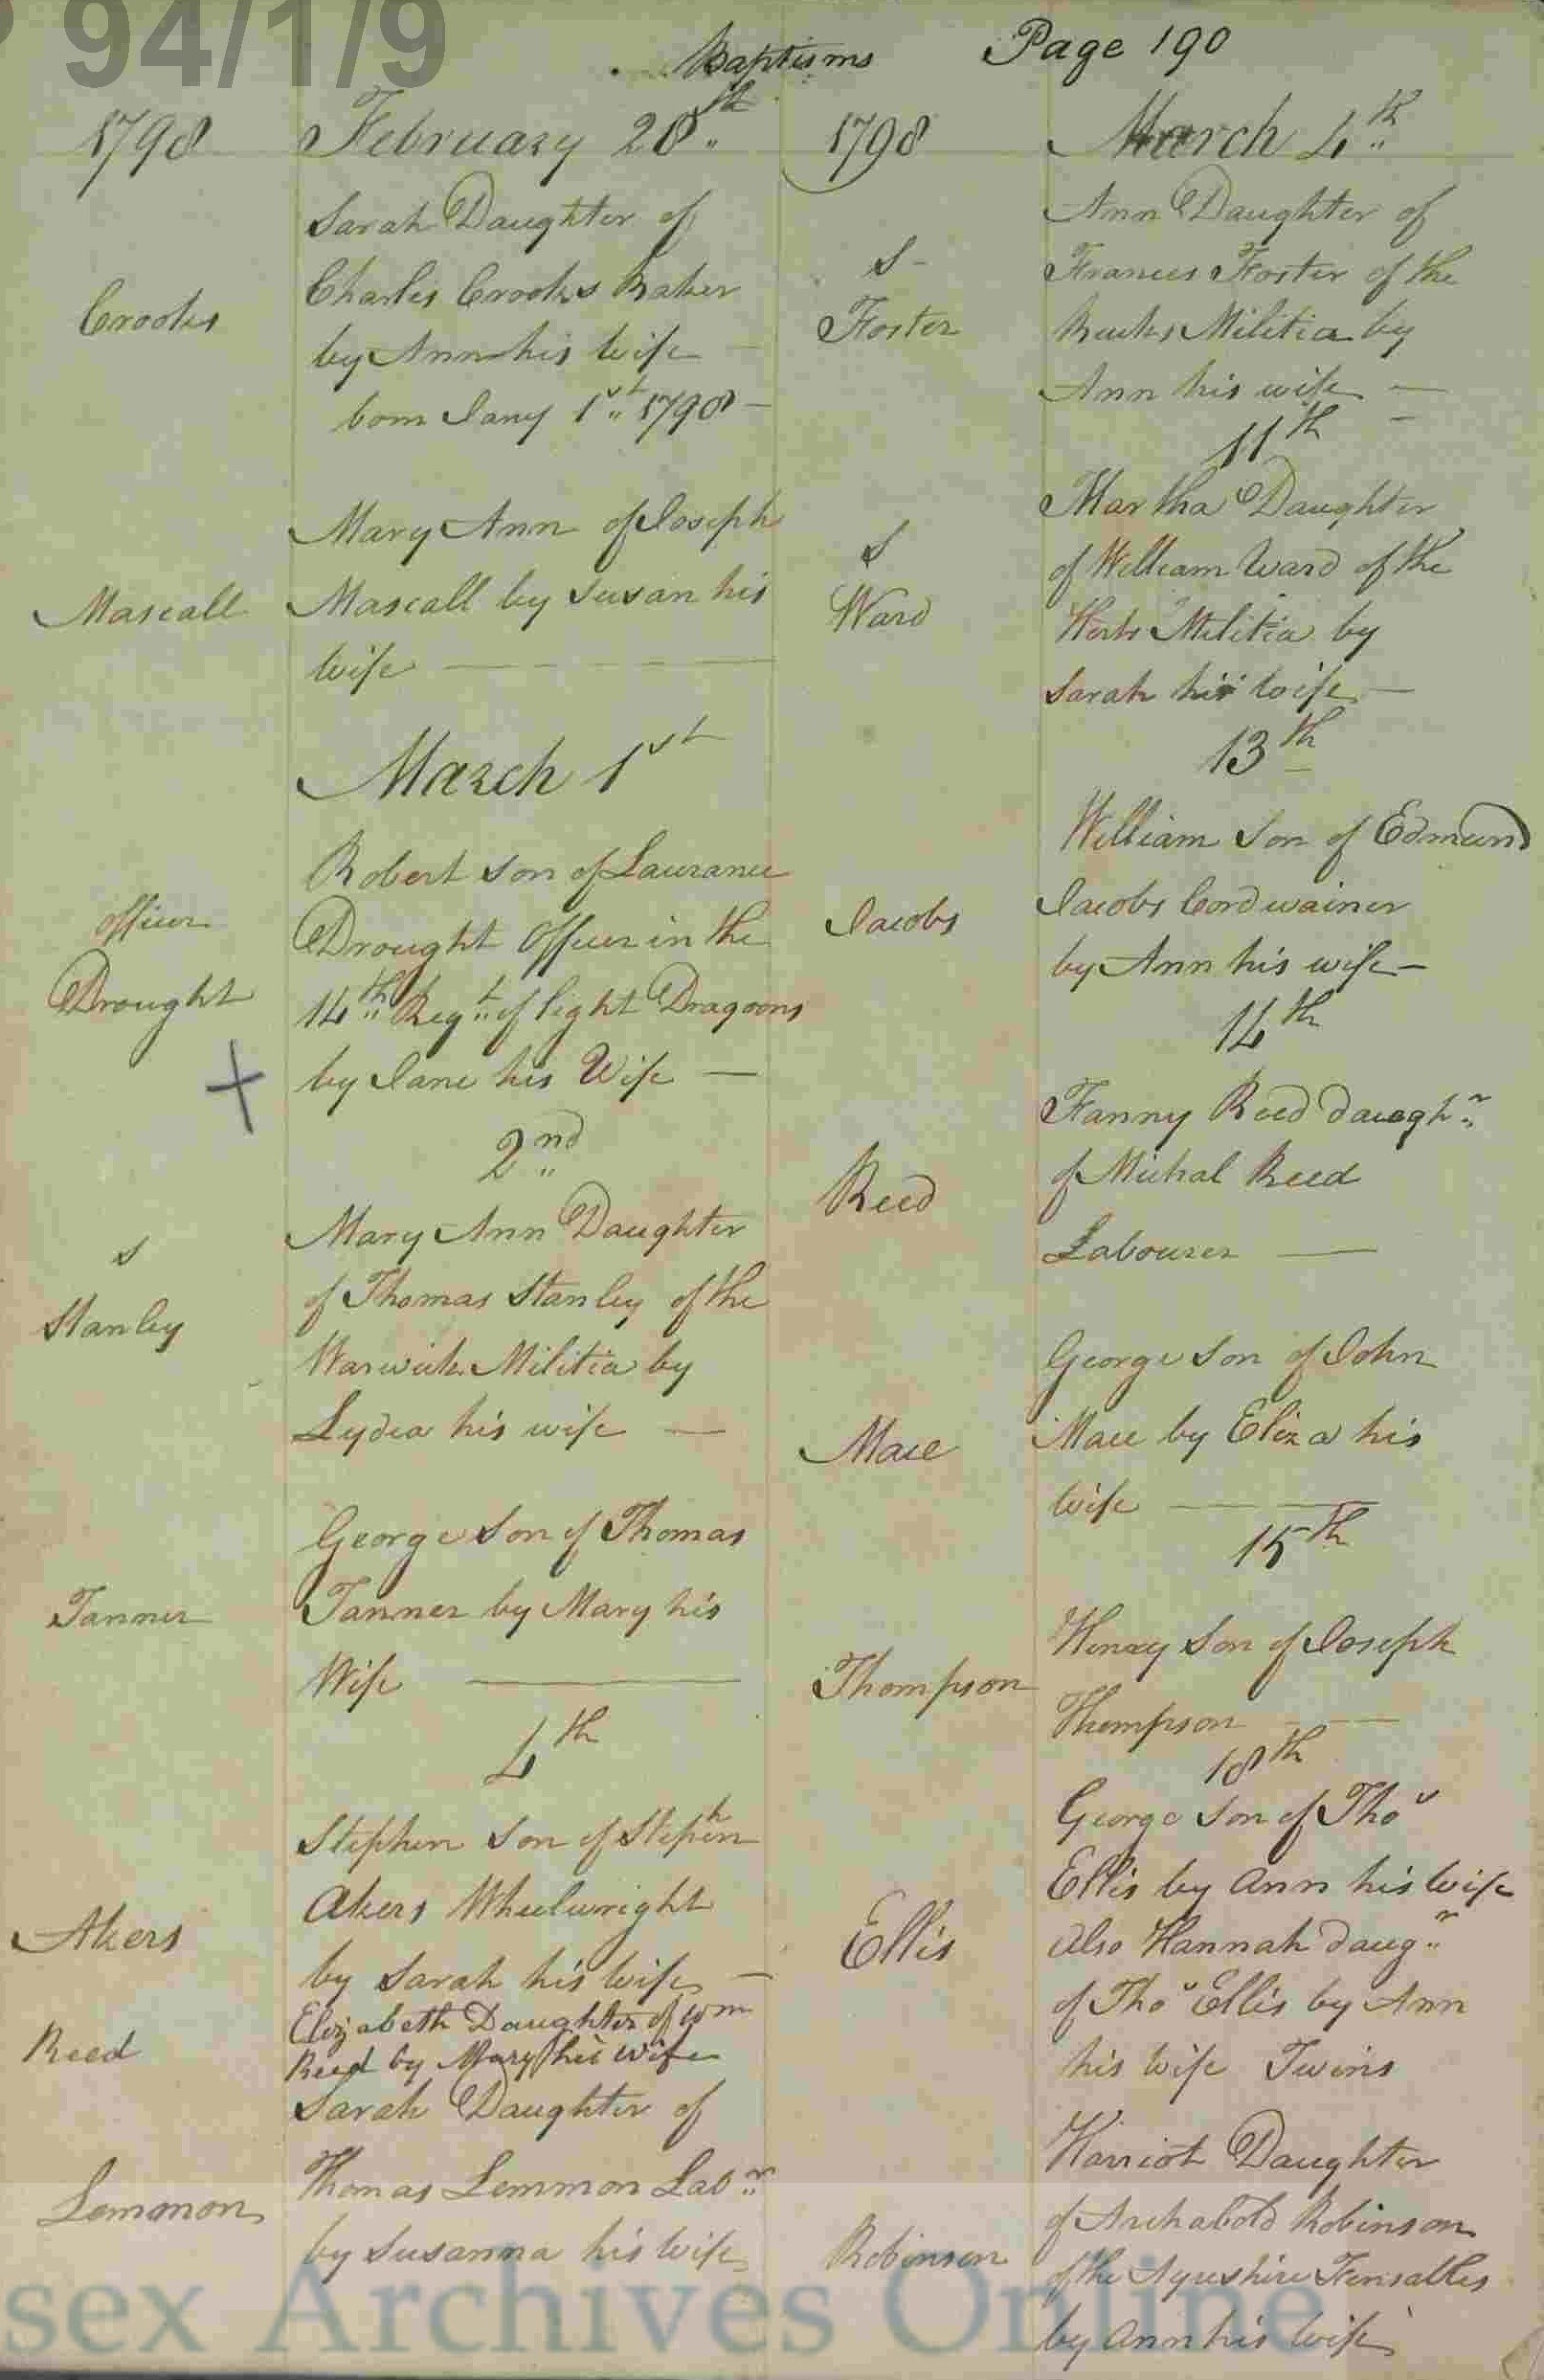 94/1/9
Baptisms Page 190
1798 February 28th
Sarah Daughter of
Crooks
Charles Crooks Baker
by Ann his wife
born Jany 1st 1798 -
Mary Ann of Joseph
Mascall
Mascall by Susan his
wife
March 1st
Robert son of Laurance
officer
Drought Officer in the
Drought
14th Regt of light Dragoons
by Jane his Wife
2nd
Mary Ann Daughter
S
of Thomas Stanley of the
Stanley
Warwick Militia by
Lydea his wife
George Son of Thomas
Tanner
Tanner by Mary his
Wife
4th
Stephen Son of Stephen
Akers Wheelwright
Akers
by Sarah his wife
Elizabeth Daughter of Wm
Reed
Reed by Mary his wife
Sarah Daughter of
Thomas Lemmon Labr
Lemmon
by Susanna his wife
1798 March 4th
Ann Daughter of
S -
Frances Foster of the
Foster
Bucks Militia by
Ann his wife
11th
Martha Daughter
S
of William Ward of the
Ward
Herts Militia by
Sarah his wife
13th
William Son of Edmund
Jacobs
Jacobs Cordwainer
by Ann his wife
14th
Fanny Reed daughr
of Michal Reed
Reed
Labourer
George Son of John
Mace
Mace by Eliza his
wife
15th
Henry Son of Joseph
Thompson
Thompson
18th
George Son of Thos
Ellis by Ann his wife
Ellis
Also Hannah daugr
of Thos Ellis by Ann
his wife Twins
Harriot Daughter
of Archabold Robinson
Robinson
of the Ayreshire Fensables
by Ann his wife
sex Archives Online